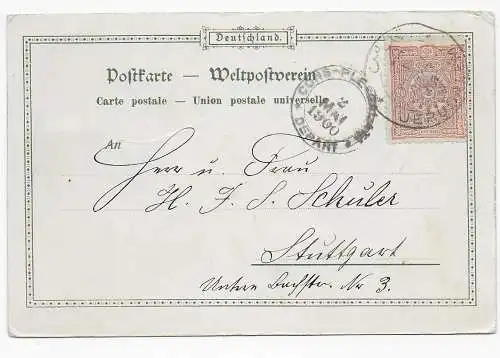 Deutschland.
Postkarte — Weltpostverein
Carte postale — Union postale universelle
2
MAI
1900
DEPART
An
Herr u. Frau
H. J. S. Schüler
Stuttgart
Untere Bachstr. Nr 3.